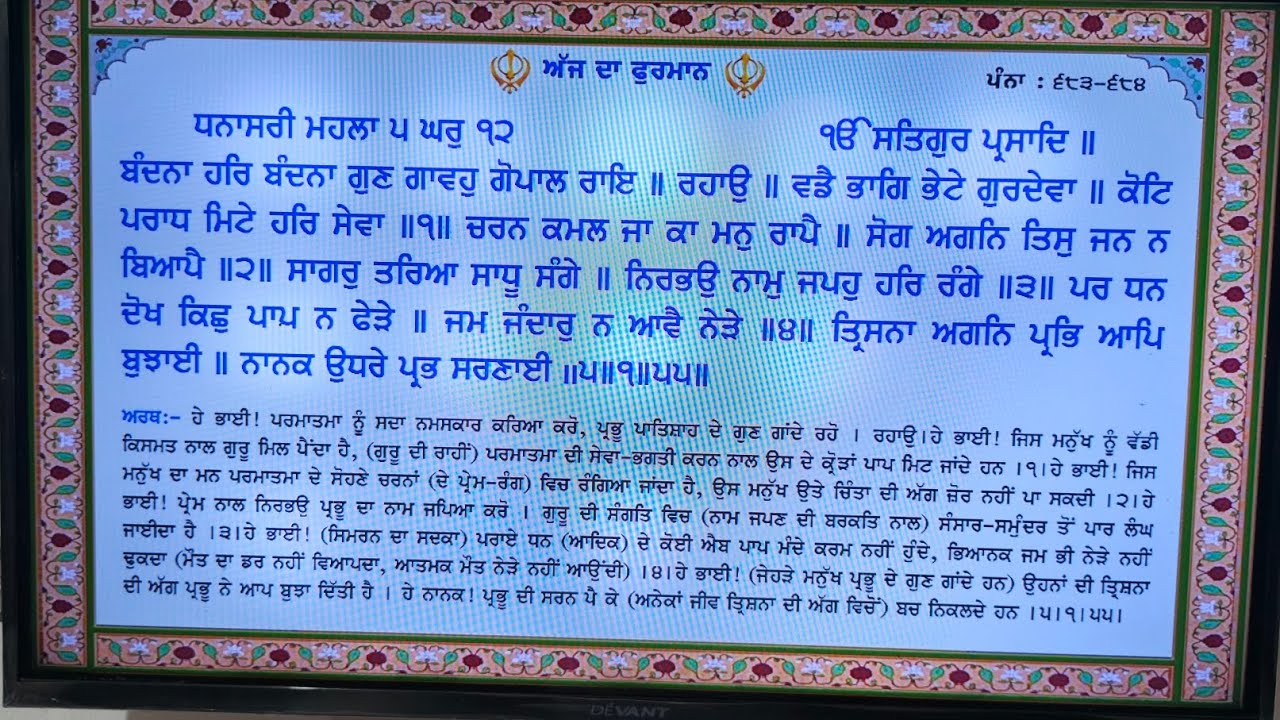 ਅੱਜ ਦਾ ਫੁਰਮਾਨ
ਪੰਨਾ : ੬੮੩-੬੮੪
ਧਨਾਸਰੀ ਮਹਲਾ ੫ ਘਰੁ ੧੨
ੴ ਸਤਿਗੁਰ ਪ੍ਰਸਾਦਿ ॥
ਬੰਦਨਾ ਹਰਿ ਬੰਦਨਾ ਗੁਣ ਗਾਵਹੁ ਗੋਪਾਲ ਰਾਇ ॥ ਰਹਾਉ ॥ ਵਡੈ ਭਾਗਿ ਭੇਟੇ ਗੁਰਦੇਵਾ ॥ ਕੋਟਿ
ਪਰਾਧ ਮਿਟੇ ਹਰਿ ਸੇਵਾ ॥੧॥ ਚਰਨ ਕਮਲ ਜਾ ਕਾ ਮਨੁ ਰਾਪੈ ॥ ਸੋਗ ਅਗਨਿ ਤਿਸੁ ਜਨ ਨ
ਬਿਆਪੈ ॥੨॥ ਸਾਗਰੁ ਤਰਿਆ ਸਾਧੂ ਸੰਗੇ ॥ ਨਿਰਭਉ ਨਾਮੁ ਜਪਹੁ ਹਰਿ ਰੰਗੇ ॥੩॥ ਪਰ ਧਨ
ਦੋਖ ਕਿਛੁ ਪਾਪ ਨ ਫੇੜੇ ॥ ਜਮ ਜੰਦਾਰੁ ਨ ਆਵੈ ਨੇੜੇ ॥੪॥ ਤ੍ਰਿਸਨਾ ਅਗਨਿ ਪ੍ਰਭਿ ਆਪਿ
ਬੁਝਾਈ ॥ ਨਾਨਕ ਉਧਰੇ ਪ੍ਰਭ ਸਰਣਾਈ ॥੫॥੧॥੫੫॥
ਅਰਥ:- ਹੇ ਭਾਈ! ਪਰਮਾਤਮਾ ਨੂੰ ਸਦਾ ਨਮਸਕਾਰ ਕਰਿਆ ਕਰੋ, ਪ੍ਰਭੂ ਪਾਤਿਸ਼ਾਹ ਦੇ ਗੁਣ ਗਾਂਦੇ ਰਹੋ । ਰਹਾਉ।ਹੇ ਭਾਈ! ਜਿਸ ਮਨੁੱਖ ਨੂੰ ਵੱਡੀ
ਕਿਸਮਤ ਨਾਲ ਗੁਰੂ ਮਿਲ ਪੈਂਦਾ ਹੈ, (ਗੁਰੂ ਦੀ ਰਾਹੀਂ) ਪਰਮਾਤਮਾ ਦੀ ਸੇਵਾ-ਭਗਤੀ ਕਰਨ ਨਾਲ ਉਸ ਦੇ ਕ੍ਰੋੜਾਂ ਪਾਪ ਮਿਟ ਜਾਂਦੇ ਹਨ ।੧।ਹੇ ਭਾਈ! ਜਿਸ
ਮਨੁੱਖ ਦਾ ਮਨ ਪਰਮਾਤਮਾ ਦੇ ਸੋਹਣੇ ਚਰਨਾਂ (ਦੇ ਪ੍ਰੇਮ-ਰੰਗ) ਵਿਚ ਰੰਗਿਆ ਜਾਂਦਾ ਹੈ, ਉਸ ਮਨੁੱਖ ਉਤੇ ਚਿੰਤਾ ਦੀ ਅੱਗ ਜ਼ੋਰ ਨਹੀਂ ਪਾ ਸਕਦੀ ।੨।ਹੇ
ਭਾਈ! ਪ੍ਰੇਮ ਨਾਲ ਨਿਰਭਉ ਪ੍ਰਭੂ ਦਾ ਨਾਮ ਜਪਿਆ ਕਰੋ । ਗੁਰੂ ਦੀ ਸੰਗਤਿ ਵਿਚ (ਨਾਮ ਜਪਣ ਦੀ ਬਰਕਤਿ ਨਾਲ) ਸੰਸਾਰ-ਸਮੁੰਦਰ ਤੋਂ ਪਾਰ ਲੰਘ
ਜਾਈਦਾ ਹੈ ।੩।ਹੇ ਭਾਈ! (ਸਿਮਰਨ ਦਾ ਸਦਕਾ) ਪਰਾਏ ਧਨ (ਆਦਿਕ) ਦੇ ਕੋਈ ਐਬ ਪਾਪ ਮੰਦੇ ਕਰਮ ਨਹੀਂ ਹੁੰਦੇ, ਭਿਆਨਕ ਜਮ ਭੀ ਨੇੜੇ ਨਹੀਂ
ਢੁਕਦਾ (ਮੌਤ ਦਾ ਡਰ ਨਹੀਂ ਵਿਆਪਦਾ, ਆਤਮਕ ਮੌਤ ਨੇੜੇ ਨਹੀਂ ਆਉਂਦੀ) ।੪।ਹੇ ਭਾਈ! (ਜੇਹੜੇ ਮਨੁੱਖ ਪ੍ਰਭੂ ਦੇ ਗੁਣ ਗਾਂਦੇ ਹਨ) ਉਹਨਾਂ ਦੀ ਤ੍ਰਿਸ਼ਨਾ
ਦੀ ਅੱਗ ਪ੍ਰਭੂ ਨੇ ਆਪ ਬੁਝਾ ਦਿੱਤੀ ਹੈ । ਹੇ ਨਾਨਕ! ਪ੍ਰਭੂ ਦੀ ਸਰਨ ਪੈ ਕੇ (ਅਨੇਕਾਂ ਜੀਵ ਤ੍ਰਿਸ਼ਨਾ ਦੀ ਅੱਗ ਵਿਚੋਂ) ਬਚ ਨਿਕਲਦੇ ਹਨ ।੫।੧।੫੫।
DEVANT